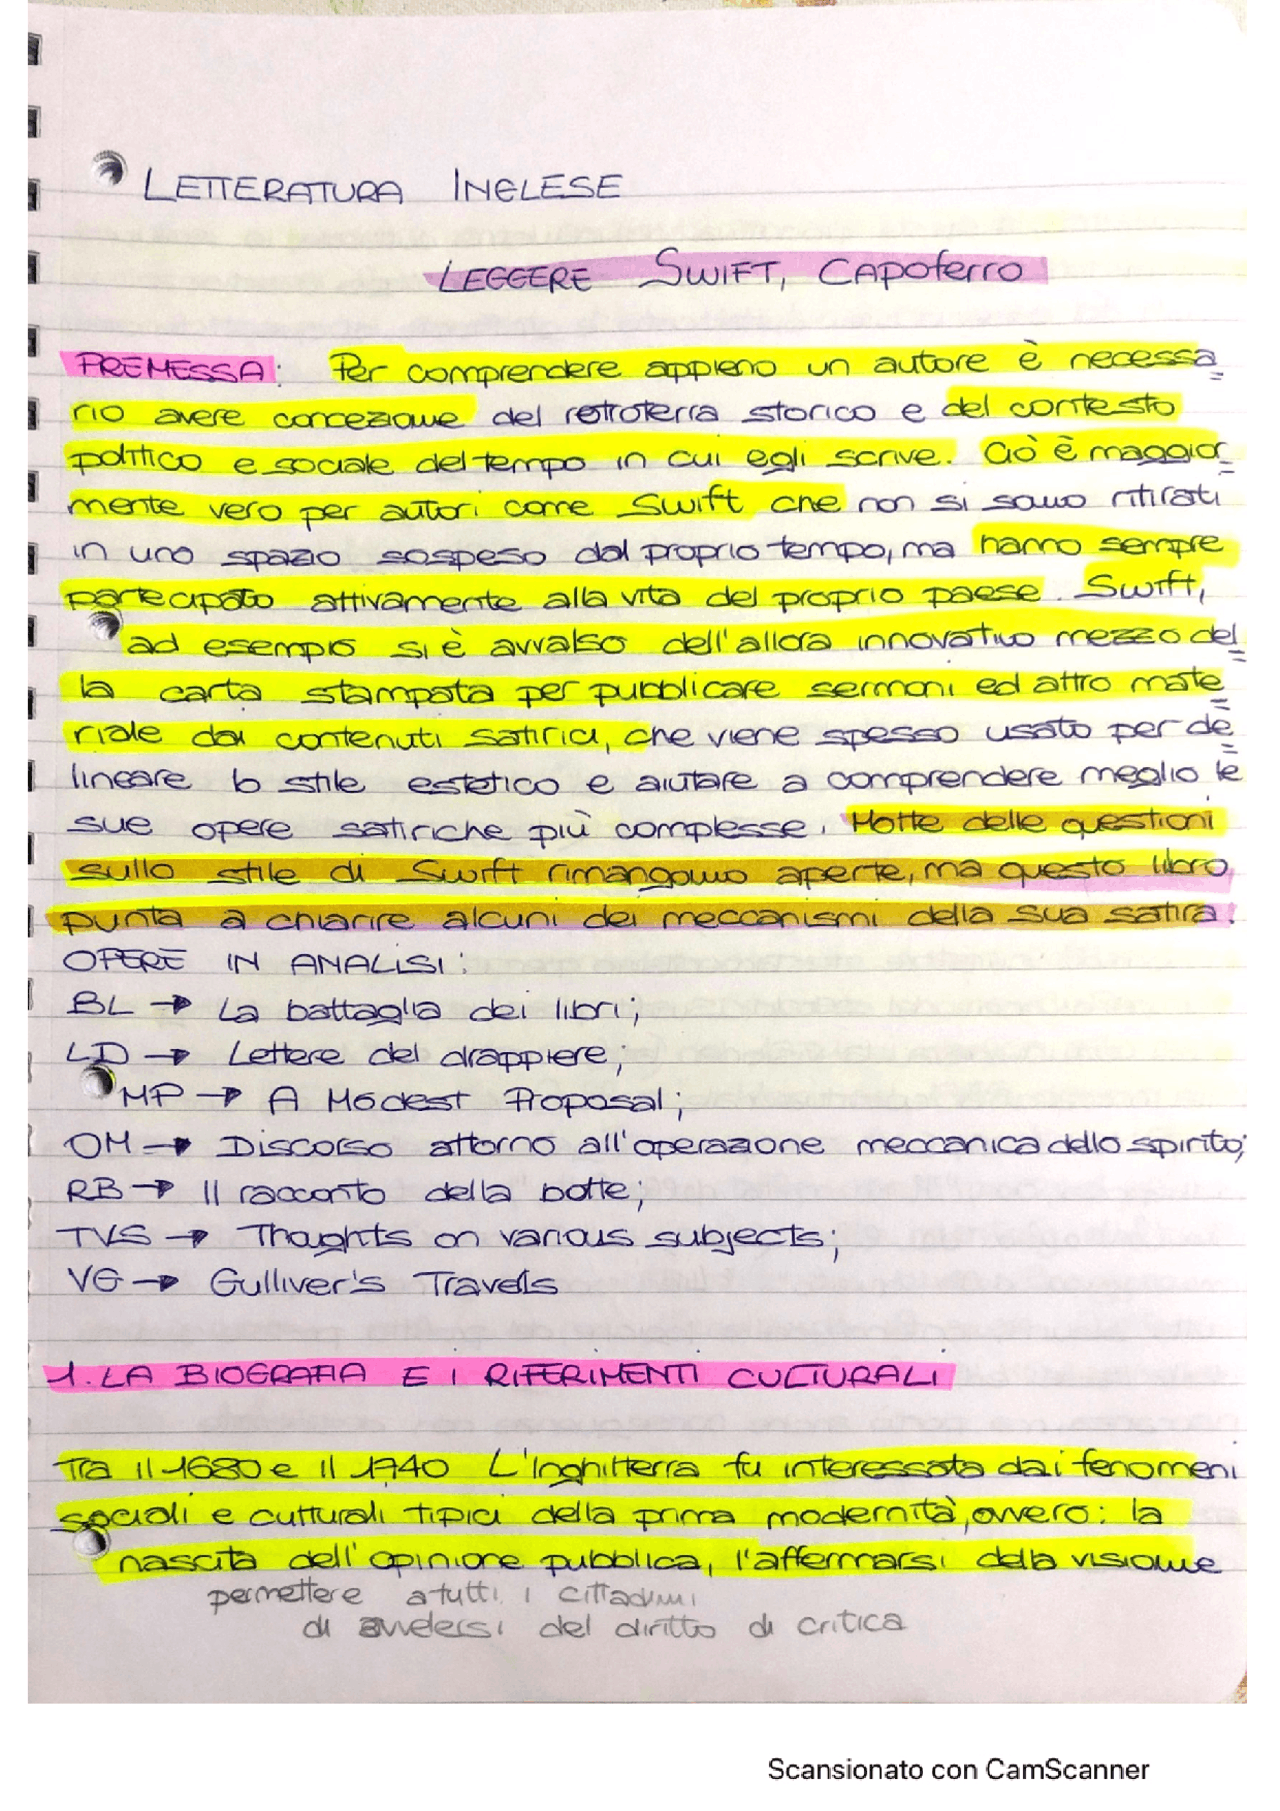 LETTERATURA INGLESE
LEGGERE SWIFT, CAPOFERRO
PREMESSA: Per comprendere appieno un autore è necessa
rio avere concezione del retroterra storico e del contesto
politico e sociale del tempo in cui egli scrive. Ciò è maggior
mente vero per autori come Swift che non si sono ritirati
in uno spazio sospeso dal proprio tempo, ma hanno sempre
partecipato attivamente alla vita del proprio paese. Swift,
ad esempio si è avvalso dell'allora innovativo mezzo del
la carta stampata per pubblicare sermoni ed altro mate
riale dai contenuti satirici, che viene spesso usato per de
lineare lo stile estetico e aiutare a comprendere meglio le
sue opere satiriche più complesse. Molte delle questioni
sullo stile di Swift rimangono aperte, ma questo libro
punta a chiarire alcuni dei meccanismi della sua satira.
OPERE IN ANALISI:
BL → La battaglia dei libri;
LD → Lettere del drappiere;
MP → A Modest Proposal;
OM → Discorso attorno all'operazione meccanica dello spirito;
RB → Il racconto della botte;
TVS → Thoughts on various subjects;
VG → Gulliver's Travels
1. LA BIOGRAFIA E I RIFERIMENTI CULTURALI
Tra il 1680 e il 1740 L'Inghilterra fu interessata dai fenomeni
sociali e culturali tipici della prima modernità, ovvero: la
nascita dell'opinione pubblica, l'affermarsi della visione
permettere a tutti i cittadini
di avvelersi del diritto di critica
Scansionato con CamScanner